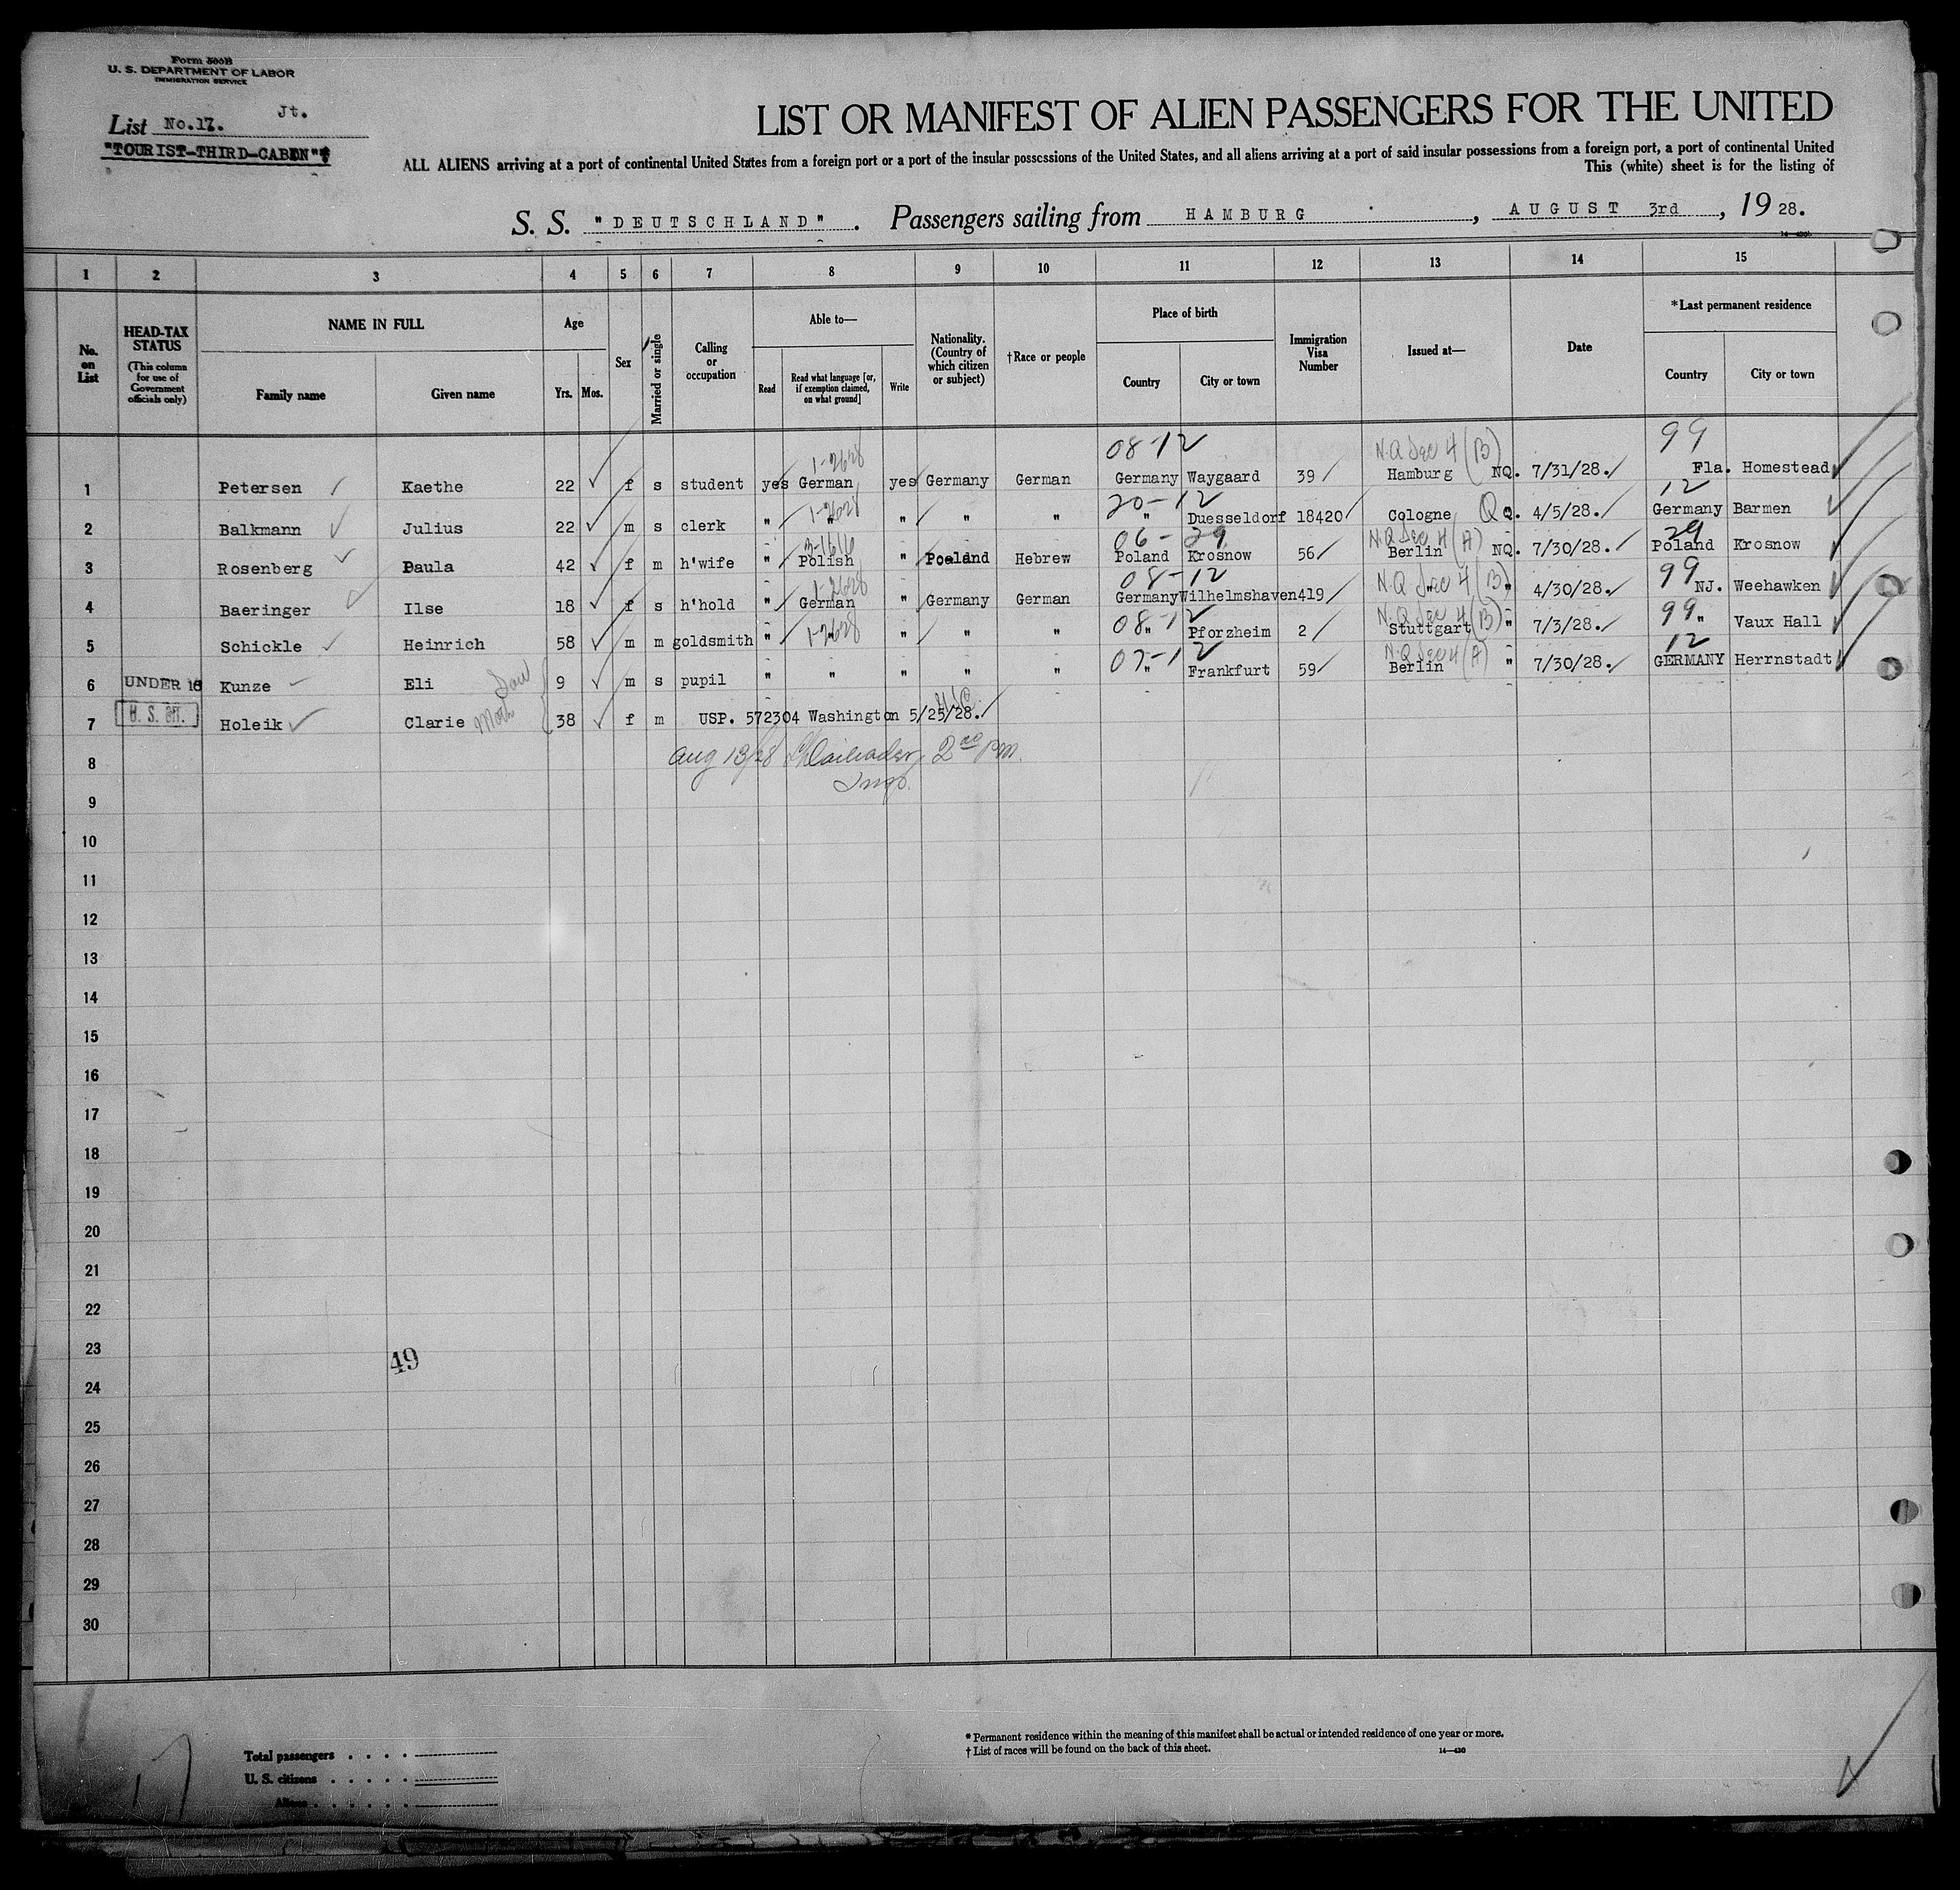 Form 500B
U. S. DEPARTMENT OF LABOR
IMMIGRATION SERVICE
List No.17. Jt.
"TOURIST-THIRD-CABIN"
LIST OR MANIFEST OF ALIEN PASSENGERS FOR THE UNITED
ALL ALIENS arriving at a port of continental United States from a foreign port or a port of the insular possessions of the United States, and all aliens arriving at a port of said insular possessions from a foreign port, a port of continental United
This (white) sheet is for the listing of
S. S. "DEUTSCHLAND". Passengers sailing from HAMBURG, AUGUST 3rd, 1928.
1 2 3 4 5 6 7 8 9 10 11 12 13 14 15
No. on List
HEAD-TAX STATUS (This column for use of Government officials only)
NAME IN FULL
Family name
Given name
Age
Yrs. Mos.
Sex
Married or single
Calling or occupation
Able to—
Read
Read what language [or, if exemption claimed, on what ground]
Write
Nationality. (Country of which citizen or subject)
†Race or people
Place of birth
Country
City or town
Immigration Visa Number
Issued at—
Date
*Last permanent residence
Country
City or town
1-2628 08-12 N.Q Sec 4 (B) 99
1 Petersen Kaethe 22 f s student yes German yes Germany German Germany Waygaard 39 Hamburg NQ. 7/31/28. Fla. Homestead
1-2628 20-12 Q 12
2 Balkmann Julius 22 m s clerk " " " " " " Duesseldorf 18420 Cologne Q. 4/5/28. Germany Barmen
3-1616 06-29 N.Q Sec 4 (A) 29
3 Rosenberg Paula 42 f m h'wife " Polish " Poland Hebrew Poland Krosnow 56 Berlin NQ. 7/30/28. Poland Krosnow
1-2628 08-12 N.Q Sec 4 (B) 99
4 Baeringer Ilse 18 f s h'hold " German " Germany German Germany Wilhelmshaven 419 " " 4/30/28. NJ. Weehawken
1-2628 08-12 N.Q Sec 4 (B) 99
5 Schickle Heinrich 58 m m goldsmith " " " " " " Pforzheim 2 Stuttgart " 7/3/28. " Vaux Hall
07-12 N.Q Sec 4 (A) 12
6 UNDER 16 Kunze Eli 9 m s pupil " " " " " " Frankfurt 59 Berlin " 7/30/28. GERMANY Herrnstadt
7 Holeik Clarie 38 f m USP. 572304 Washington 5/25/28.
8 Aug 13/28 2 00 pm.
Insp.
9
10
11
12
13
14
15
16
17
18
19
20
21
22
23
49
24
25
26
27
28
29
30
17
Total passengers
U. S. citizens
Aliens
* Permanent residence within the meaning of this manifest shall be actual or intended residence of one year or more.
† List of races will be found on the back of this sheet. 14—430